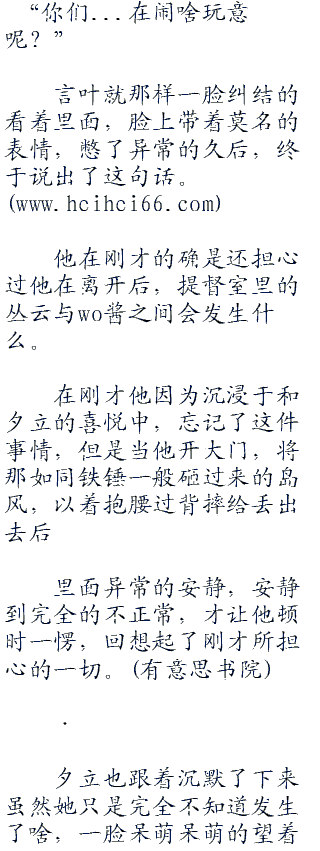 “你们...在闹啥玩意
呢？”
言叶就那样一脸纠结的
看着里面，脸上带着莫名的
表情，憋了异常的久后，终
于说出了这句话。
(www.hcihci66.com)
他在刚才的确是还担心
过他在离开后，提督室里的
丛云与wo酱之间会发生什
么。
在刚才他因为沉浸于和
夕立的喜悦中，忘记了这件
事情，但是当他开大门，将
那如同铁锤一般砸过来的岛
风，以着抱腰过背摔给丢出
去后
里面异常的安静，安静
到完全的不正常，才让他顿
时一愣，回想起了刚才所担
心的一切。(有意思书院)
.
夕立也跟着沉默了下来
虽然她只是完全不知道发生
了啥，一脸呆萌呆萌的望着